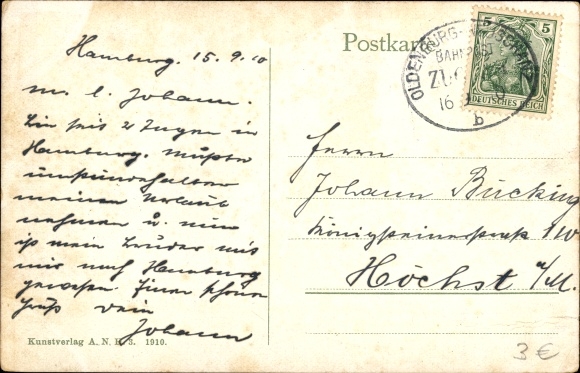 Hamburg. 15.9.10
m. l. Johann.
Bin seit 2 Tagen in
Hamburg. Mußte
meinen Urlaub
nehmen u. nun
ist mein Bruder mit
mir nach Hamburg
Einen schönen
Gruß Dein
Johann
Kunstverlag A. N. H. 3. 1910.
Postkarte
OLDENBURG-
BAHNPOST
ZUG
16
b
5 5
DEUTSCHES REICH
Herrn
Johann Bücking
Königsteinerstraße 110
Höchst a/M.
3 €